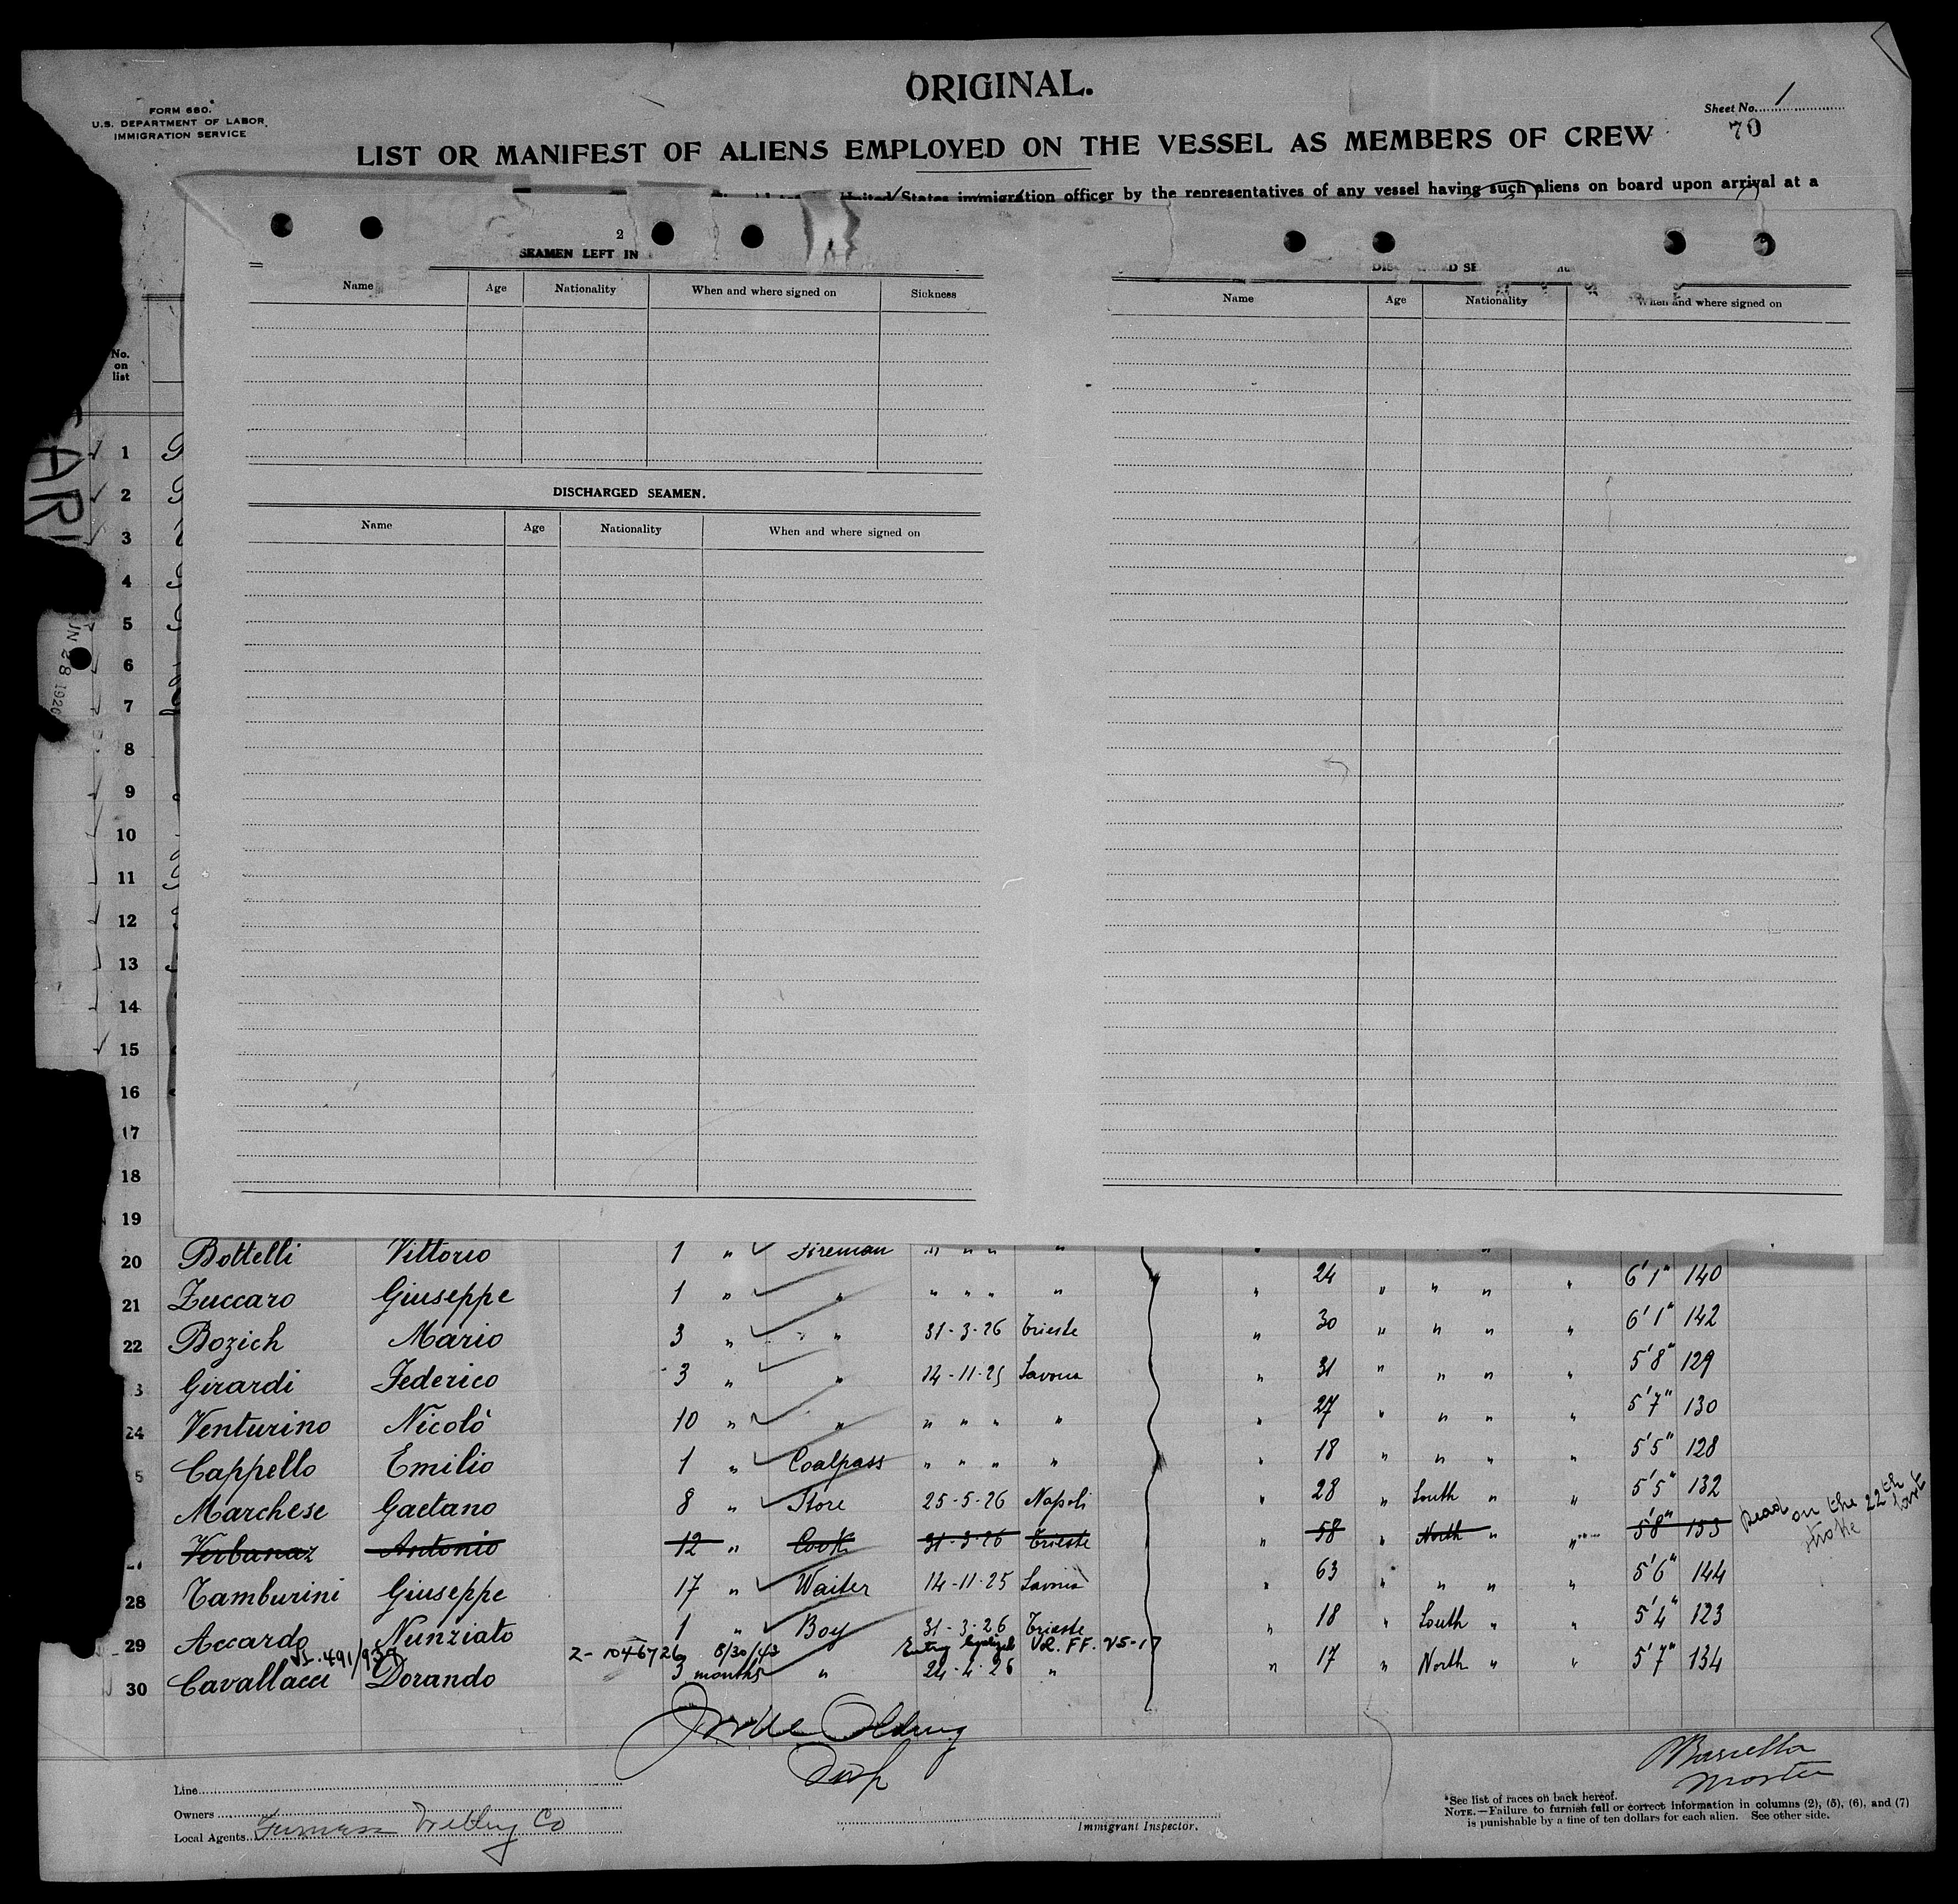 ORIGINAL.
FORM 680.
U.S. DEPARTMENT OF LABOR
IMMIGRATION SERVICE
Sheet No. 1
70
LIST OR MANIFEST OF ALIENS EMPLOYED ON THE VESSEL AS MEMBERS OF CREW
United States immigration officer by the representatives of any vessel having such aliens on board upon arrival at a
2
SEAMEN LEFT IN
Name Age Nationality When and where signed on Sickness
Name Age Nationality When and where signed on
DISCHARGED SEAMEN.
Name Age Nationality When and where signed on
No.
on
list
1
2
3
4
5
6
7
8
9
10
11
12
13
14
15
16
17
18
19
20 Bottelli Vittorio 1 " Fireman " " " "
21 Zuccaro Giuseppe 1 " " " " " " " 24 " " " " 6'1" 140
22 Bozich Mario 3 " " 31-3-26 Trieste " 30 " " " " 6'1" 142
3 Girardi Federico 3 " " 14-11-25 Savona " 31 " " " " 5'8" 129
24 Venturino Nicolò 10 " " " " " " " 27 " " " " 5'7" 130
5 Cappello Emilio 1 " Coalpass " " " " " 18 " " " " 5'5" 128
Marchese Gaetano 8 " Store 25-5-26 Napoli " 28 " South " " 5'5" 132
Verbanaz Antonio 12 " Cook 31-3-26 Trieste " 58 " North " " 5'8" 153 Dead on the 22th
28 Tamburini Giuseppe 17 " Waiter 14-11-25 Savona " 63 " " " " 5'6" 144
29 Accardo Nunziato 1 " Boy 31-3-26 Trieste " 18 " South " " 5'4" 123
2-1046726 8/30/43 Entry
30 Cavallacci Dorando 3 months " 24-4-26 " " 17 " North " " 5'7" 134
Master
Line
Owners
Local Agents Furness Withy Co
Immigrant Inspector.
*See list of races on back hereof.
NOTE.—Failure to furnish full or correct information in columns (2), (5), (6), and (7)
is punishable by a fine of ten dollars for each alien. See other side.